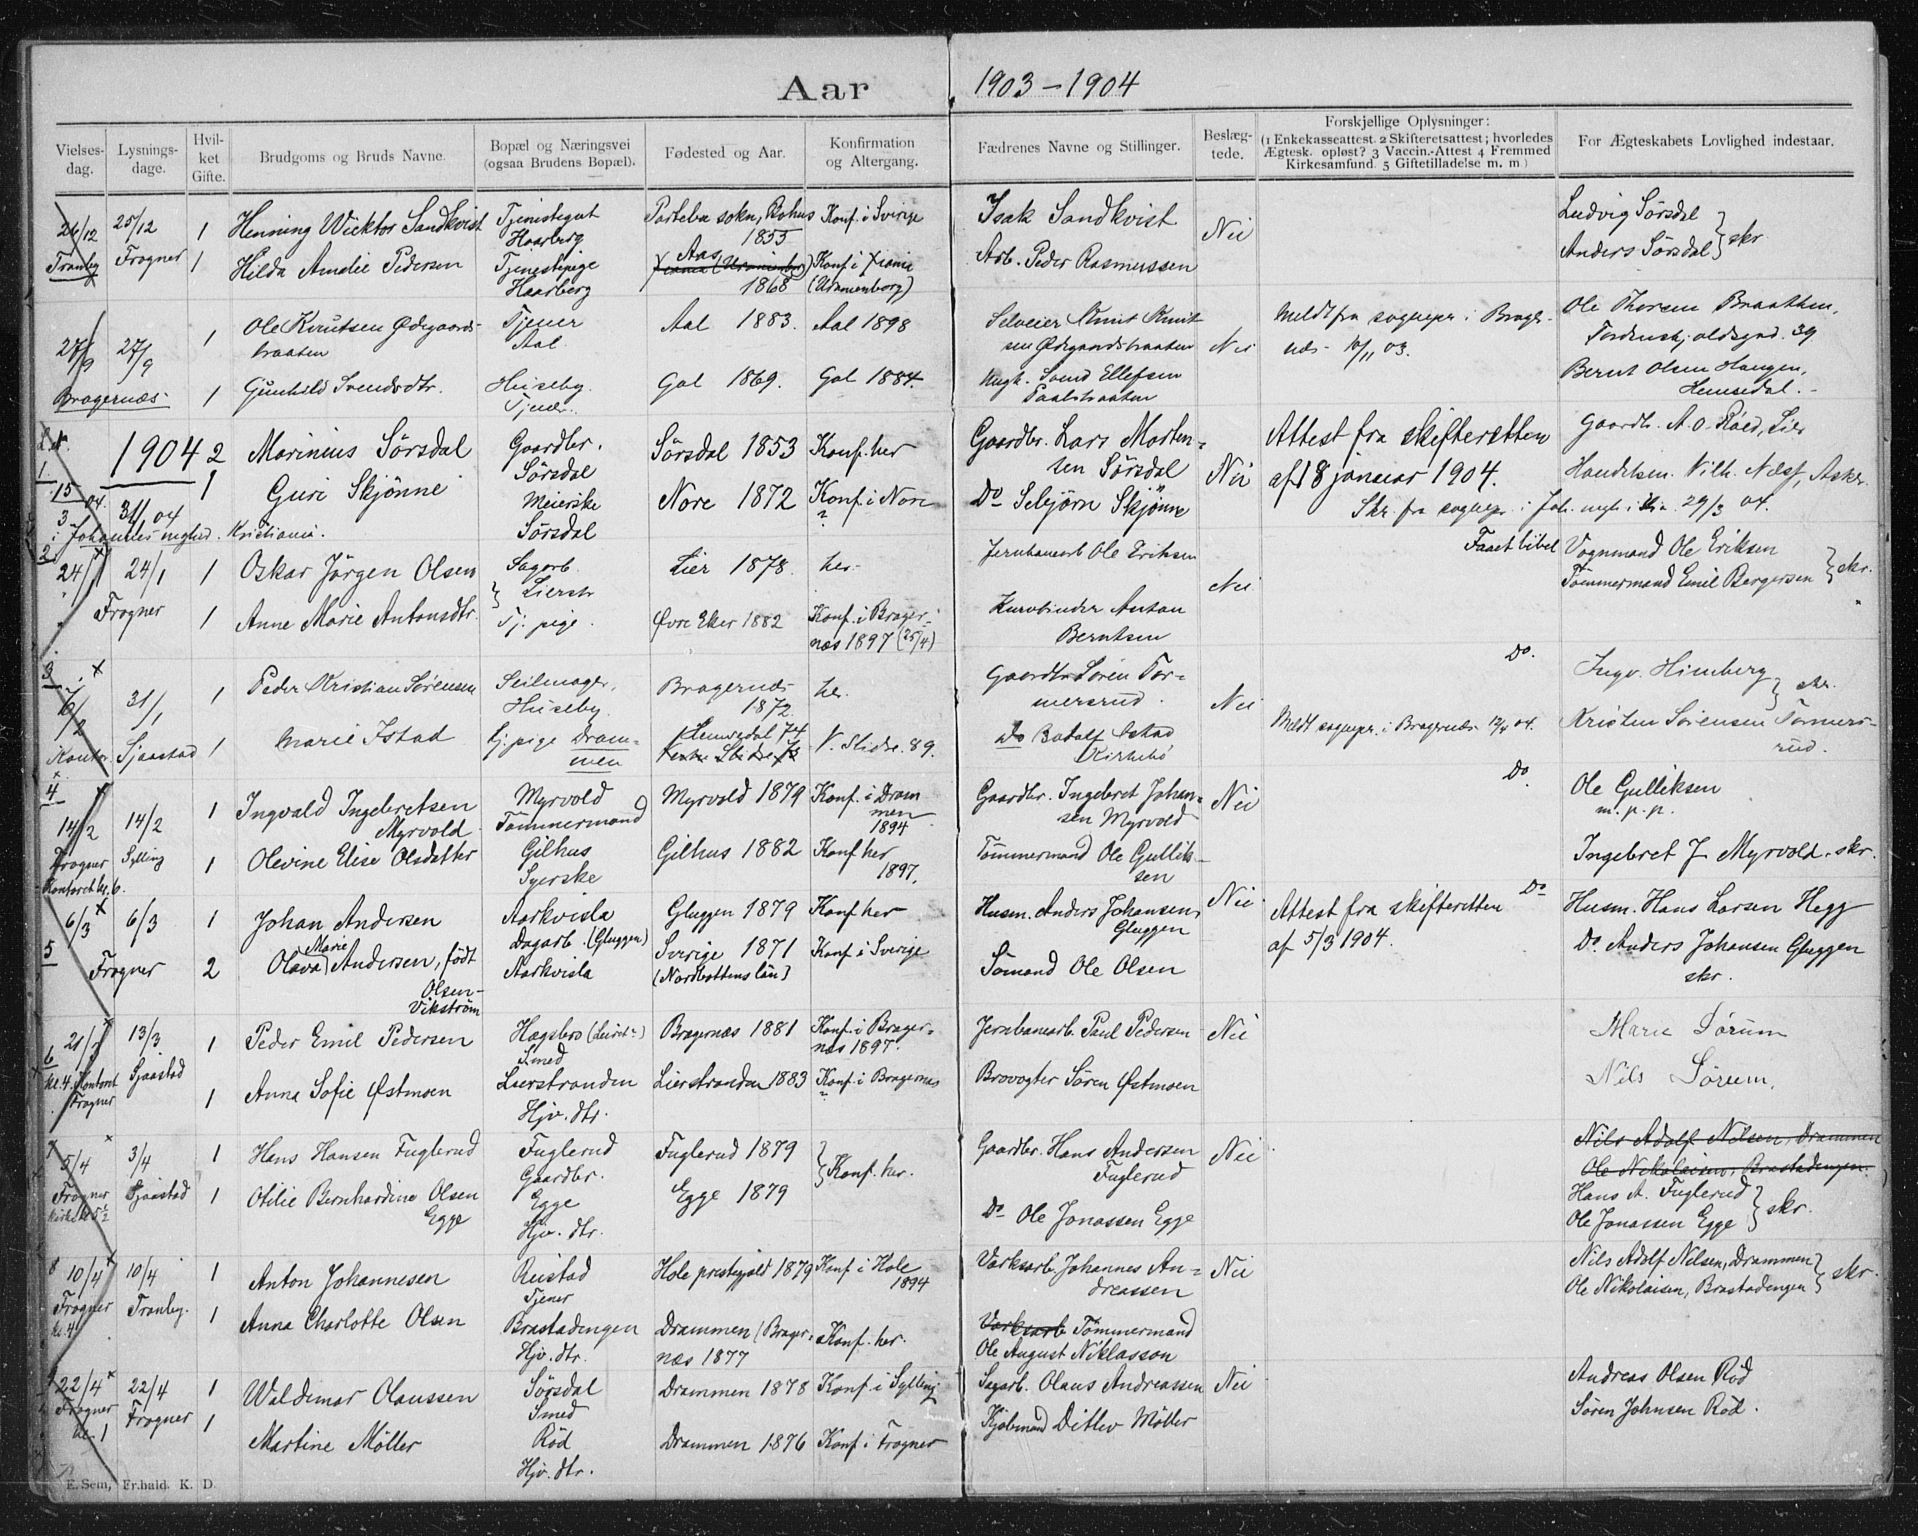 Aar 1903-1904
Vielses- dag.
Lysnings- dage.
Hvil- ket Gifte.
Brudgoms og Bruds Navne.
Bopæl og Næringsvei (ogsaa Brudens Bopæl).
Fødested og Aar.
Konfirmation og Altergang.
Fædrenes Navne og Stillinger.
Beslæg- tede.
Forskjellige Oplysninger:
(1 Enkekasseattest. 2 Skifteretsattest; hvorledes
Ægtesk. opløst? 3 Vaccin.-Attest 4 Fremmed
Kirkesamfund. 5 Giftetilladelse m. m.)
For Ægteskabets Lovlighed indestaar.
26/12 25/12 1 Henning Wicktor Sandkvist Tjenestegut Haarberg
sokn, Bohus 1855 Konf. i Sverige Isak Sandkvist Nei Ludvig Sørsdal
Tranby Frogner 1 Hilda Amelie Pedersen Tjenestepige Haarberg
Aas 1868 Konf. i Xiania Arb. Peder Rasmussen Anders Sørsdal } skr
27/9 27/9 1 Ole Knutsen Ødegaards- braaten Tjener Aal
Aal 1883. Aal 1898 Selveier Knut Knut- sen Ødegaardsbraaten Nei
Meldt fra sognepr. i Brager- næs 10/11 03.
Ole Thorsen Braathen, Tordenskjoldsgad. 39
Bragernæs 1 Gunhild Svendsdtr. Huseby. Tjener.
Gol 1869. Gol 1884. Svend Ellefsen
Bernt Olsen Haugen, Hemsedal.
1904
1 15/3 04. 31/1 04 2 Marinius Sørsdal Gaardbr. Sørsdal
Sørsdal 1853 Konf. her Gaardbr. Lars Morten- sen Sørsdal Nei
Attest fra skifteretten af 18 januar 1904.
Gaardb. A. O. Røed, Lier
i Johannes mghed. Kristiania. 1 Guri Skjønne Meierske Sørsdal
Nore 1872 Konf. i Nore ? Do Sebjørn Skjønne
Skr. fra sognepr. i Joh. mgh. i Kra. 29/3 04.
Handelsm. Vilh. Næss, Asker
2 24/1 24/1 1 Oskar Jörgen Olsen Sagarb. Lierstr
Lier 1878. her. Jernbanearb Ole Eriksen Nei
Faaet bibel Vognmand Ole Eriksen
Frogner 1 Anne Marie Antonsdtr. Tj. pige.
Øvre Eker 1882 Konf. i Brager- næs 1897 (25/4)
Kurvbinder Anton Berntsen
Tömmermand Emil Bergersen } skr.
3 31/1 1 Peder Kristian Sørensen Seilmager, Huseby.
Bragernæs 1872. her. Gaardbr Søren Tor- mersrud. Nei Do.
Ingv. Himberg } skr.
Kontor. Sjaastad 1 Marie Istad tj. pige Dram- men
Hemsedal 74 V. Slidre 89. Do
Meldt sognepr. i Bragernæs 04. Kristen Sørensen
4 14/2 14/2 1 Ingvald Ingebretsen Myrvold Myrvold Tømmermand
Myrvold 1879 Konf. i Dram- men 1894
Gaardbr. Ingebret Johan- sen Myrvold Nei Do
Ole Gulliksen m. p. p.
Frogner Kontoret kl. 6. Sylling 1 Olevine Elise Olsdatter Gilhus Syerske
Gilhus 1882 Konf her 1897. Tömmermand Ole Gullik- sen
Ingebret J Myrvold. skr.
5 6/3 6/3 1 Johan Andersen Aarkvisla Dagarb. (Gluggen)
Gluggen 1879 Konf her Husm. Anders Johansen, Gluggen Nei
Attest fra skifteretten af 5/3 1904. Do
Husm. Hans Larsen Hegg
Frogner 2 Olava Marie Andersen, født Olsen- Vikström Aarkvisla
Sverige 1871 (Nordbottens län) Konf. i Sverige Sömand Ole Olsen
Do. Anders Johansen Gluggen skr.
6 21/3 13/3 1 Peder Emil Pedersen Hagsbro Smed
Bragernæs 1881 Konf. i Brager- næs 1897. Jernbanearb. Paul Pedersen Nei
Marie Sørum
kl. 4. Kontoret Frogner Sjaastad 1 Anna Sofie Østmoen Lierstranden Hjv. dtr.
Lierstranden 1883 Konf. i Bragernæs ? Brovogter Sören Østmoen
Nils Sørum,
7 5/4 3/4 1 Hans Hansen Fuglerud Fuglerud Gaardbr.
Fuglerud 1879 } Konf. her. Gaardbr. Hans Andersen Fuglerud Nei
Nils Adolf Nilsen, Drammen
Ole Nikolaisen, Brastadengen.
Frogner kirke kl 5½ Sjaastad 1 Otilie Bernhardine Olsen Egge Egge Hjv. dtr.
Egge 1879 Do Ole Jonassen Egge
Hans A. Fuglerud
Ole Jonassen Egge } skr.
8 10/4 10/4 1 Anton Johannesen Reistad Tjener
Hole prestegjeld 1879 Konf. i Hole 1894
Værksarb. Johannes An- dreassen Nei
Nils Adolf Nilsen, Drammen
Ole Nikolaisen, Brastadengen } skr.
Frogner kl. 4 Tranby. 1 Anna Charlotte Olsen Brastadengen Hjv. dtr.
Drammen (Brager- næs 1877 Konf. her.
Værksarb Tömmermand Ole August Niklasson
9 22/4 22/4 1 Waldimar Olaussen Sørsdal Smed
Drammen 1878 Konf. i Sylling Sagarb. Olaus Andreassen Nei
Andreas Olsen Rød
Frogner kl. 1 Frogner 1 Martine Møller Rød Hjv. dtr.
Drammen 1876 Konf. i Frogner Kjöbmand Ditlev Möller
Søren Johnsen Rød.
E. Sem, Fr.hald. K. D.